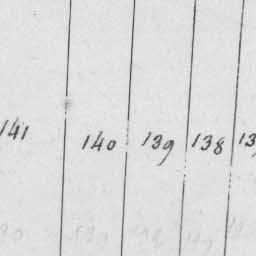 141 140 139 138